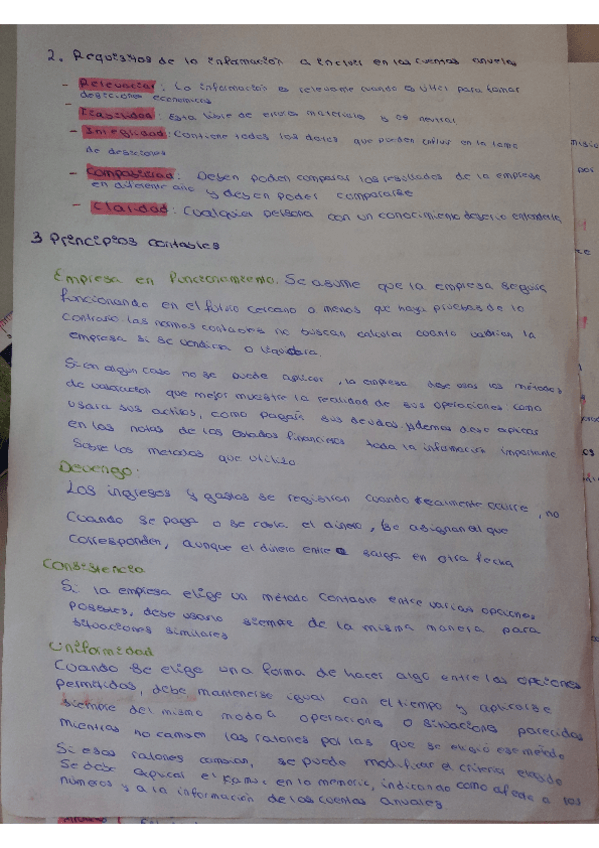 2. Requisitos de la información a incluir en las cuentas anuales
- Relevancia: La información es relevante cuando es útil para tomar
decisiones economicas
- Fiabilidad: Esta libre de errores materiales y es neutral
- Integridad: Contiene todos los datos que pueden influir en la toma
de desiciones
- Comparabilidad: Deben poden comparar los resultados de la empresa
en diferente año y deben poder compararse
- Claridad: Cualquier persona con un conocimiento debería entenderla
3 Principios contables
Empresa en funcionamiento. Se asume que la empresa seguirá
funcionando en el futuro cercano a menos que haya pruebas de lo
contrario. las normas contables no buscan calcular cuanto valdrían la
empresa si se vendiera o liquidara.
Si en algun caso no se puede aplicar, la empresa debe usar los métodos
de valoración que mejor muestre la realidad de sus operaciones como
usara sus activos, como pagará sus deudas. Ademas debe aplicar
en las notas de los estados financieros toda la información importante
sobre los metodos que utilizo
Devengo:
Los ingresos y gastos se registran cuando realmente ocurre, no
cuando se paga o se cobra el dinero, se asignan al que
corresponden, aunque el dinero entre o salga en otra fecha
Consistencia
Si la empresa elige un método contable entre varias opciones
posibles, debe usarlo siempre de la misma manera para
situaciones similares
Uniformidad
Cuando se elige una forma de hacer algo entre las opciones
permitidas, debe mantenerse igual con el tiempo y aplicarse
siempre del mismo modo a operaciones o situaciones parecidas
mientras no cambien las razones por las que se eligió ese metodo
Si esas razones cambian, se puede modificar el criterio elegido
Se debe aplicar el en la memoria, indicando como afecta a los
números y a la información de las cuentas anuales